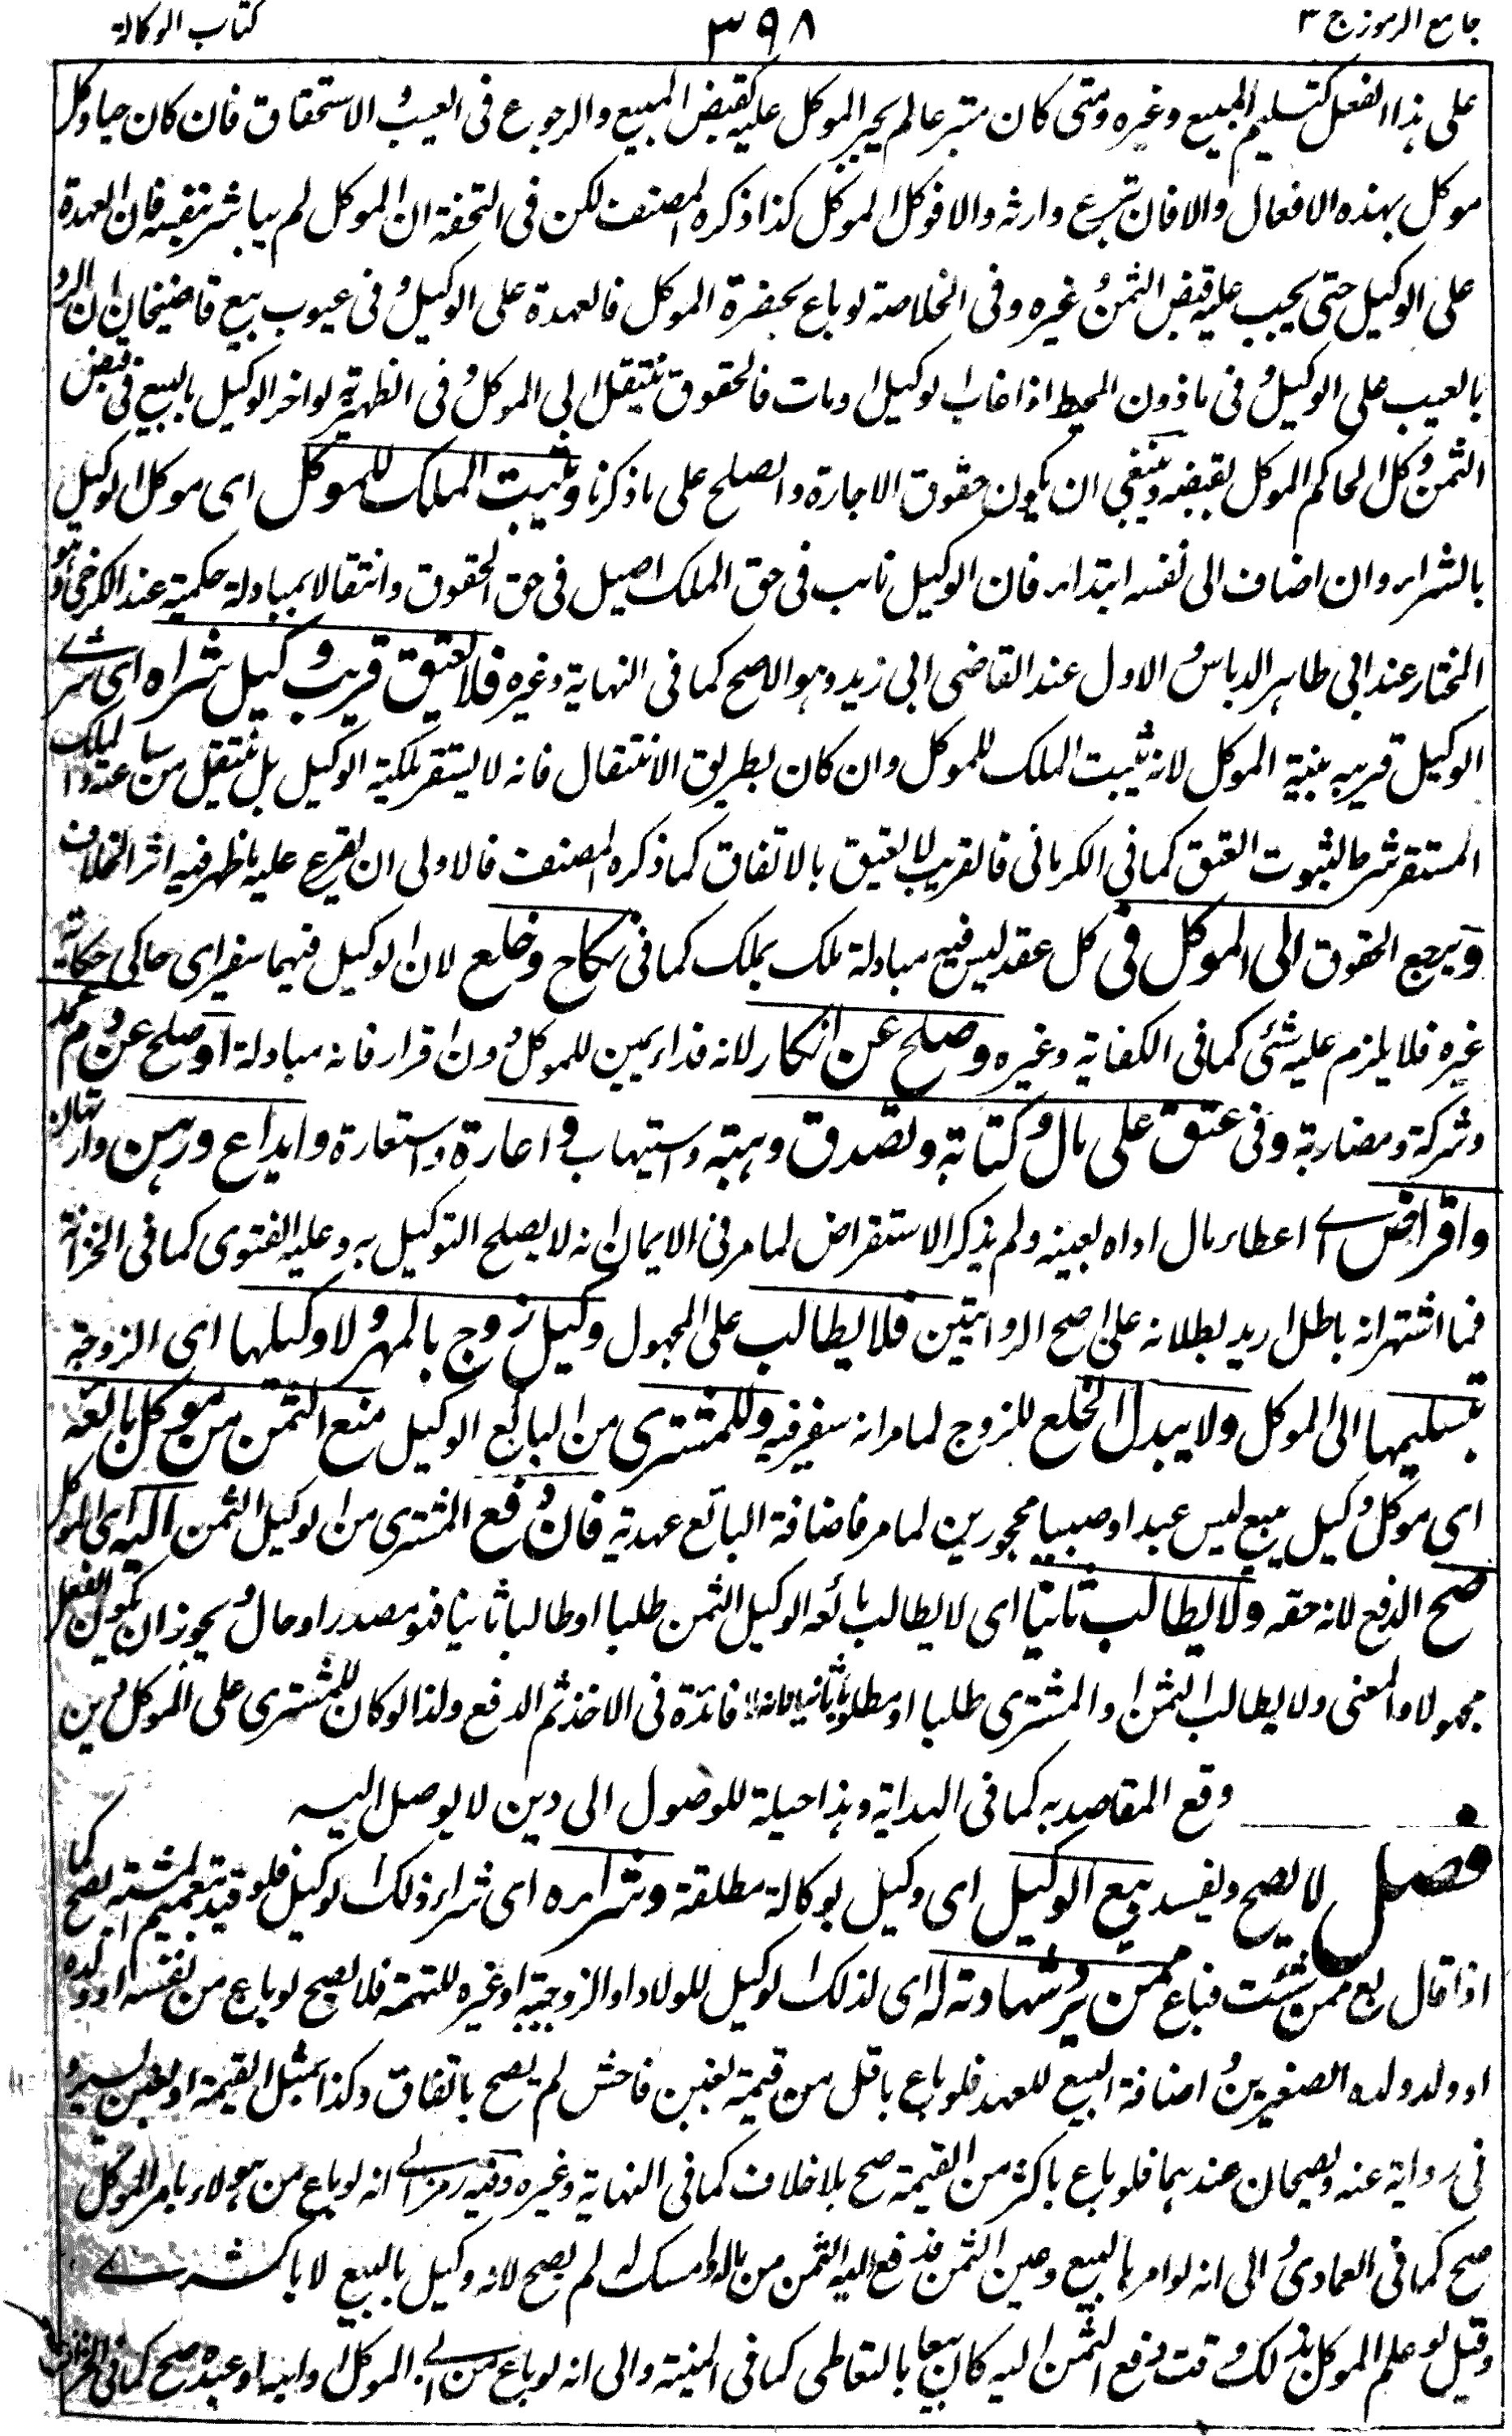 جامع الرموز ج ٣
٣٩٨
كتاب الوكالة
على هذا الفعل كتسليم المبيع وغيره ومتى كان متبرعا لم يجبر الموكل عليه كقبض المبيع والرجوع فى العيب والاستحقاق فان كان حيا وكل
موكل بهذه الافعال والا فان تبرع وارثه والا فوكل الموكل كذا ذكره المصنف لكن فى التحفة ان الموكل لم يباشر بنفسه فان العهدة
على الوكيل حتى يجب عليه قبض الثمن وغيره وفى الخلاصة لو باع بحضرة الموكل فالعهدة على الوكيل وفى عيوب بيع قاضيخان ان الرد
بالعيب على الوكيل وفى ماذون المحيط اذا غاب الوكيل او مات فالحقوق تنتقل الى الموكل وفى الظهيرية لو اخر الوكيل بالبيع فى قبض
الثمن وكل الحاكم الموكل بقبضه وينبغى ان يكون حقوق الاجارة والصلح على ما ذكرنا ويثبت الملك للموكل اى موكل الوكيل
بالشراء وان اضاف الى نفسه ابتداء فان الوكيل نائب فى حق الملك اصيل فى حق الحقوق وانتقالا بمبادلة حكمية عند الكرخى وهو
المختار عند ابى طاهر الدباس والاول عند القاضى ابى زيد وهو الاصح كما فى النهاية وغيره فلا يعتق قريب وكيل شراه اى شرے
الوكيل قريبه بنية الموكل لانه يثبت الملك للموكل وان كان بطريق الانتقال فانه لا يستقر ملكية الوكيل بل ينتقل من ساعته والملك
المستقر شرط لثبوت العتق كما فى الكرمانى فالقريب لا يعتق بالاتفاق كما ذكره المصنف فالاولى ان يفرع عليه ما ظهر فيه اثر الخلاف
ويرجع الحقوق الى الموكل فى كل عقد ليس فيه مبادلة ملك بملك كما فى نكاح وخلع لان الوكيل فيهما سفير اى حاكى حكاية
غيره فلا يلزم عليه شئ كما فى الكفاية وغيره وصلح عن انكار لانه فداء يمين للموكل دون اقرار فانه مبادلة او صلح عن دم عمد
وشركة ومضاربة وفى عتق على مال وكتابة وتصدق وهبة واستيهاب واعارة واستعارة وايداع ورهن وارتهان
واقراض اے اعطاء مال اداه بعينه ولم يذكر الاستقراض لما مر فى الايمان انه لا يصلح التوكيل به وعليه الفتوى كما فى الخزانة
فما اشتهر انه باطل اريد بطلانه على اصح الروايتين فلا يطالب على المجهول وكيل زوج بالمهر ولا وكيلها اى الزوجة
بتسليمها الى الموكل ولا ببدل الخلع للزوج لما مر انه سفير فيه وللمشترى من البائع الوكيل منع الثمن من موكل بائعه
اى موكل وكيل بيع ليس عبدا او صبيا محجورين لما مر فاضافة البائع عهدية فان دفع المشترى من الوكيل الثمن اليه اى الموكل
صح الدفع لانه حقه ولا يطالب ثانيا اى لا يطالب بائعه الوكيل الثمن طلبا او طالبا ثانيا فهو مصدر او حال ويجوز ان يكون الفعل
مجهولا والمعنى ولا يطالب الثمن او المشترى طلبا او مطلوبا ثانيا فانه لا فائدة فى الاخذ ثم الدفع ولذا لو كان للمشترى على الموكل دين
وقع المقاصد به كما فى الهداية وهذا حيلة للوصول الى دين لا يوصل اليه
فصل لا يصح ويفسد بيع الوكيل اى وكيل بوكالة مطلقة وشراءه اى شراء ذلك الوكيل فلو قيد بتعميم المشيئة يصح كما
اذا قال بع ممن شئت فباع ممن يرد شهادته له اى لذلك الوكيل للولاد او الزوجية او غيره للتهمة فلا يصح لو باع من نفسه او ولده
او ولد ولده الصغيرين واضافة البيع للعهد فلو باع باقل من قيمة بغبن فاحش لم يصح باتفاق وكذا بمثل القيمة او بغبن يسير
فى رواية عنه ويصحان عندهما فلو باع باكثر من القيمة صح بلا خلاف كما فى النهاية وغيره وفيه رمز الے انه لو باع من هولاء بامر الموكل
صح كما فى العمادى والى انه لو امر بالبيع وعين الثمن فدفع اليه الثمن من ماله وامسك له لم يصح لانه وكيل بالبيع لا بالشرے
وقيل لو علم الموكل بذلك وقت دفع الثمن اليه كان بيعا بالتعاطى كما فى المنية والى انه لو باع من ابى الموكل او ابنه او عبده صح كما فى